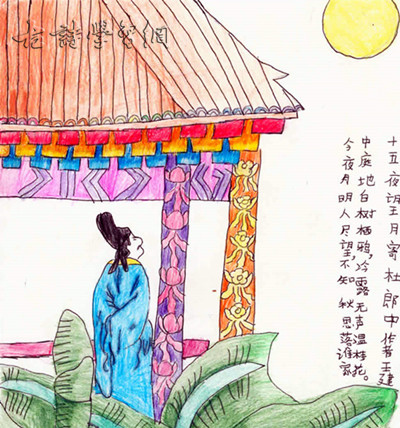 古詩學習網
十五夜望月寄杜郎中 作者王建
中庭地白树栖鸦,冷露无声温桂花。
今夜月明人尽望,不知秋思落谁家